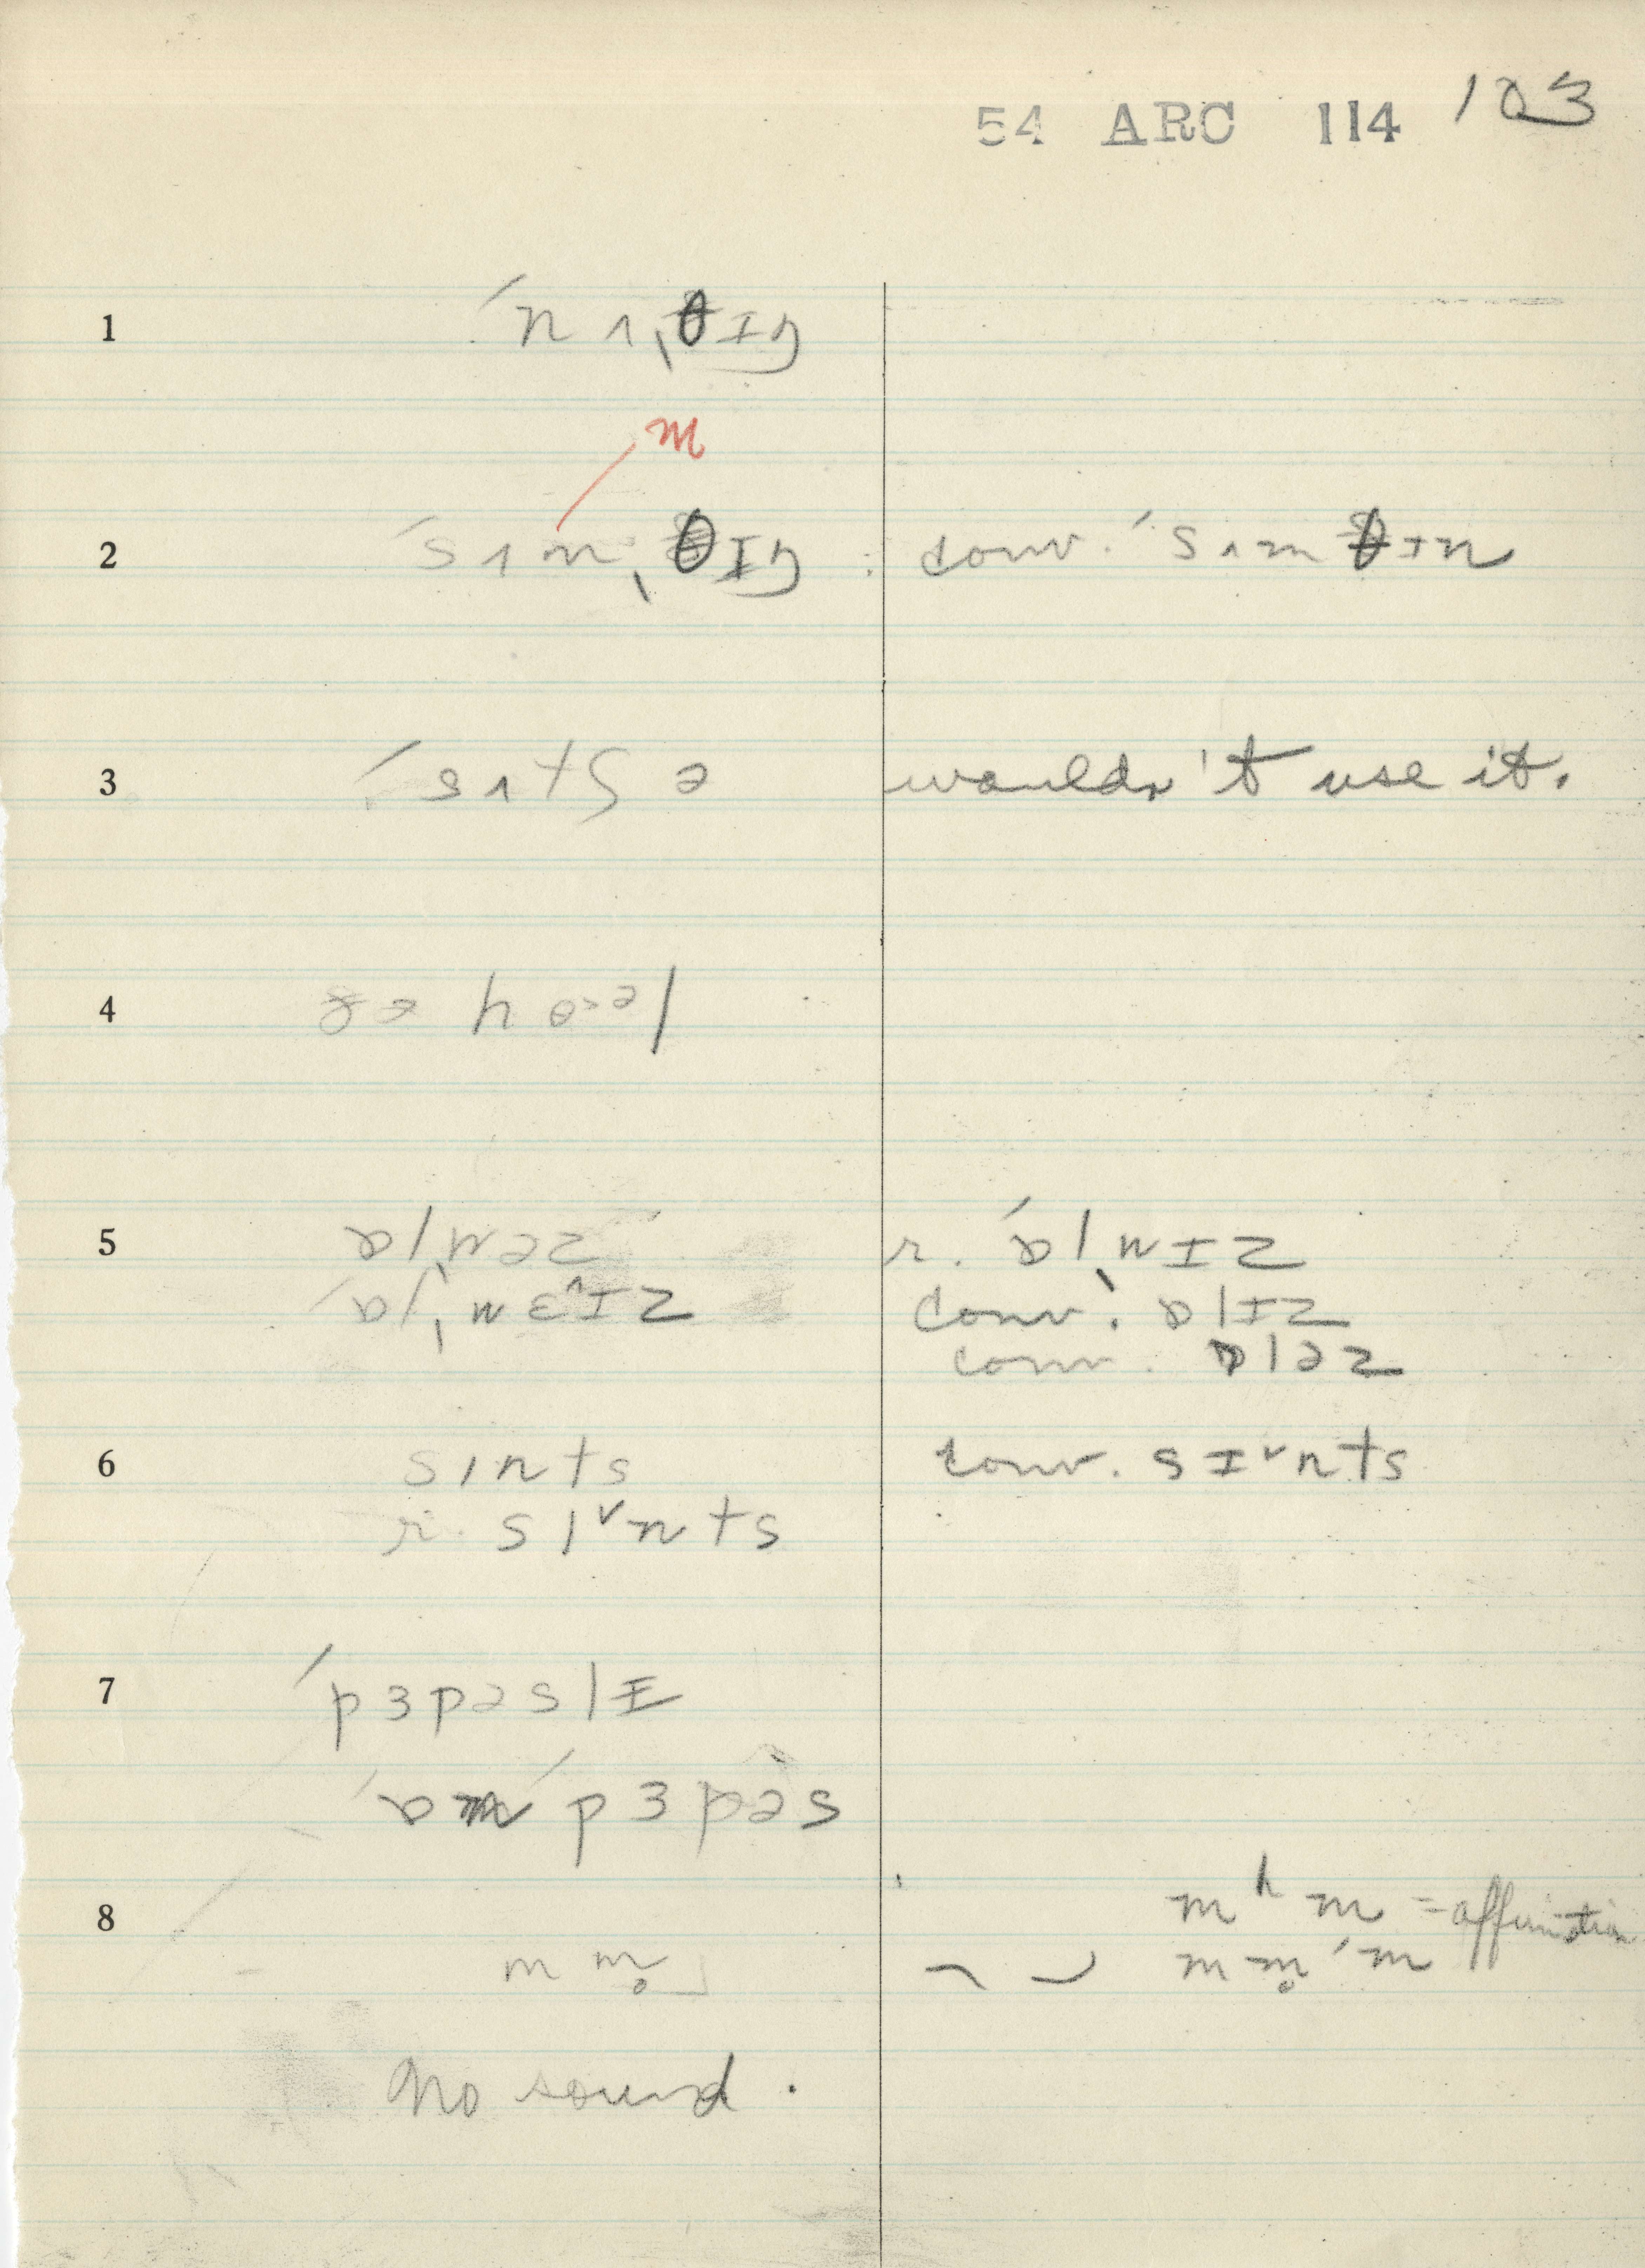 54 ARC 114 103
1 ˈnʌˌθɪŋ
m
2 ˈsʌmˌθɪŋ : conv. ˈsʌmθɪn
3 ˈsʌtʃ ə wouldn't use it.
4 ðə hoəl
5 ɒlwəz r. ˈɒlˌwɪz
ˈɒlˌwɛ^ɪz conv. ɒlɪz
conv. ɒləz
6 sɪnts conv. sɪˇnts
r. sɪˇnts
7 ˈpɜpəslɪ
ˈɒm ˈpɜpəs
8 mʰm = affirmation
m m̥ m m̥ ˈm
No sound.